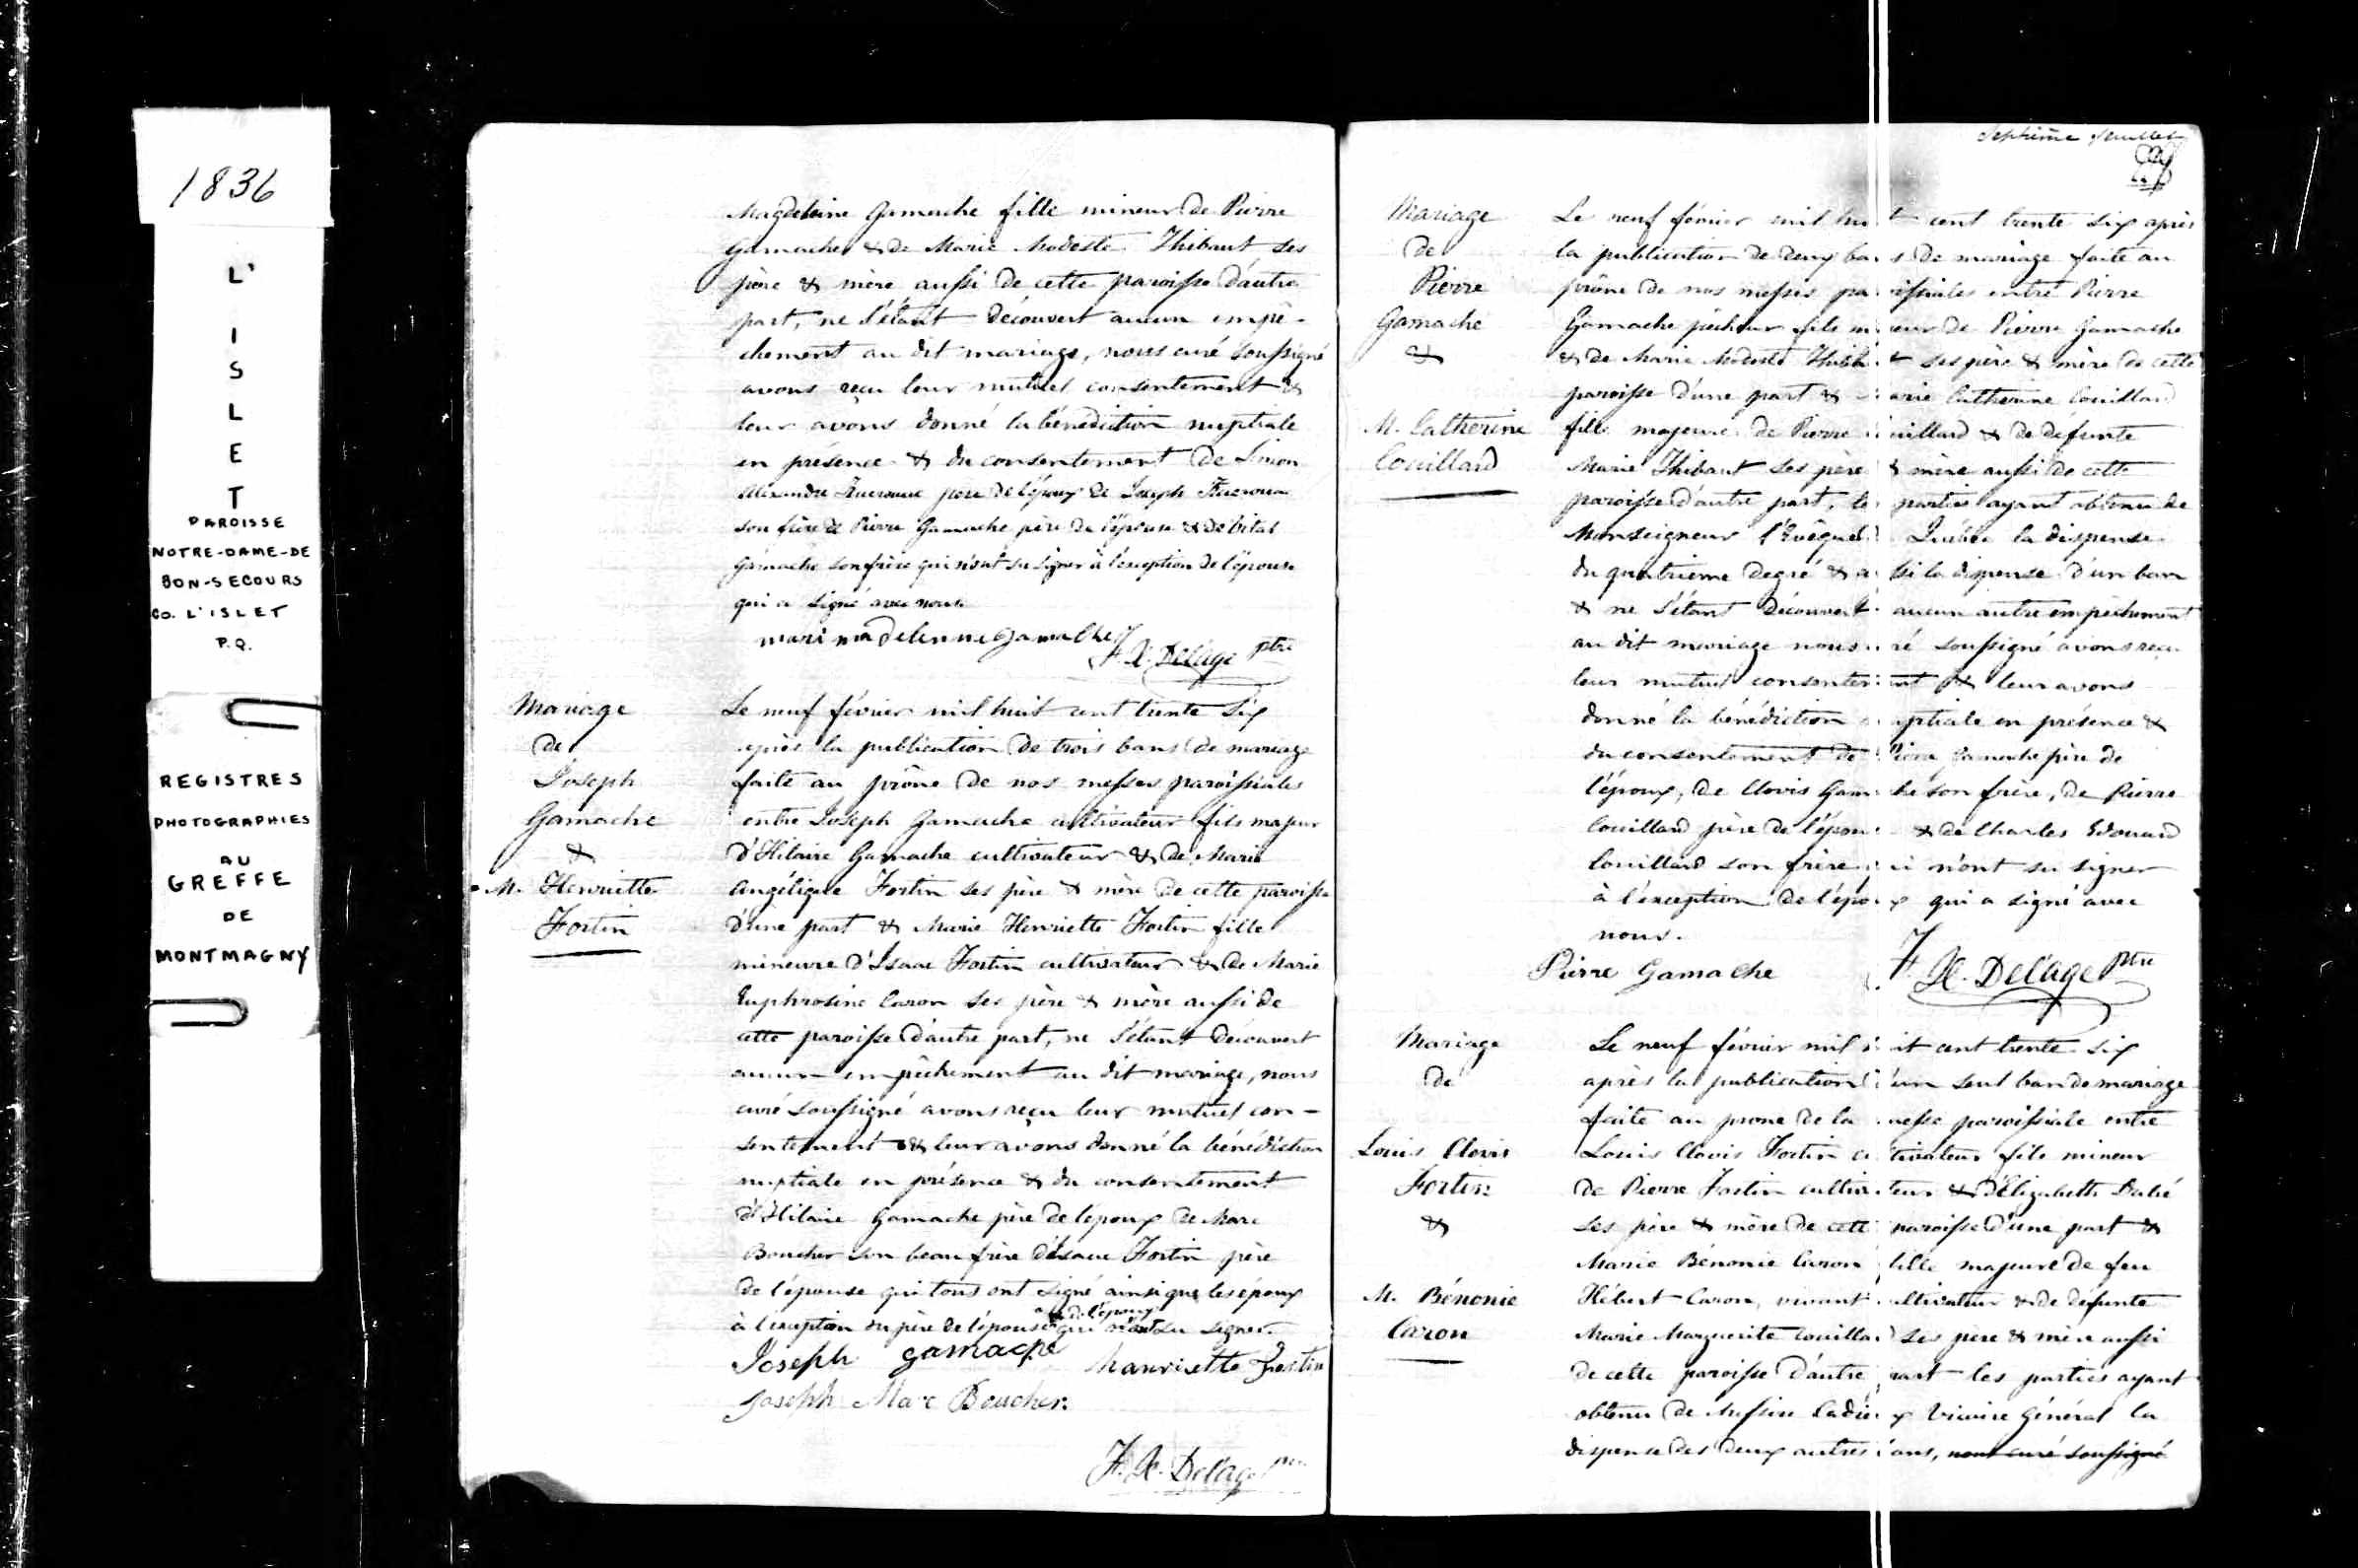 1836
L'
I
S
L
E
T
PAROISSE
NOTRE-DAME-DE
BON-SECOURS
CO. L'ISLET
P.Q.
REGISTRES
PHOTOGRAPHIES
AU
GREFFE
DE
MONTMAGNY
Magdeleine Gamache fille mineur de Pierre
Gamache & de Marie Modeste Thibaut ses
père & mère aussi de cette paroisse d'autre
part, ne s'étant découvert aucun empê-
chement au dit mariage, nous curé soussigné
avons reçu leur mutuel consentement &
leur avons donné la bénédiction nuptiale
en présence & du consentement de Simon
Alexandre père de l'époux de Joseph
son frère de Pierre Gamache père de l'épouse & de Vital
Gamache son frère qui n'ont su signer à l'exception de l'épouse
qui a signé avec nous
mari madelenne gamache F. X. Delâge ptre
Mariage
de
Joseph
Gamache
&
M. Henriette
Fortin
Le neuf février mil huit cent trente six
après la publication de trois bans de mariage
faite au prône de nos messes paroissiales
entre Joseph Gamache cultivateur fils majeur
d'Hilaire Gamache cultivateur & de Marie
Angélique Fortin ses père & mère de cette paroisse
d'une part & Marie Henriette Fortin fille
mineure d'Isaac Fortin cultivateur & de Marie
Euphrosine Caron ses père & mère aussi de
cette paroisse d'autre part, ne s'étant découvert
aucun empêchement au dit mariage, nous
curé soussigné avons reçu leur mutuel con-
sentement & leur avons donné la bénédiction
nuptiale en présence & du consentement
d'Hilaire Gamache père de l'époux de Marc
Boucher son beau frère d'Isaac Fortin père
de l'épouse qui tous ont signé ainsi que les époux
de l'époux
à l'exception du père de l'épouse qui n'ont su signer.
Joseph gamache hanriette Fortin
Joseph Marc Boucher
F. X. Delâge ptre
Septième feuillet
Mariage
de
Pierre
Gamache
&
M. Catherine
Couillard
Le neuf février mil hu t cent trente six après
la publication de deux ban s de mariage faite au
prône de nos messes pa issiales entre Pierre
Gamache pêcheur fils m eur de Pierre Gamache
& de Marie Modeste Thib t ses père & mère de cette
paroisse d'une part & arie Catherine Couillard
fille majeure de Pierre uillard & de défunte
Marie Thibaut ses père & mère aussi de cette
paroisse d'autre part, le parties ayant obtenu de
Monseigneur l'Evêque Québec la dispense
du quatrième degré & a ssi la dispense d'un ban
& ne s'étant découvert aucun autre empêchement
au dit mariage nous ré soussigné avons reçu
leur mutuel consentem nt & leur avons
donné la bénédiction uptiale en présence &
du consentement de Pierre Gamache père de
l'époux, de Clovis Gam he son frère, de Pierre
Couillard père de l'épou & de Charles Edouard
Couillard son frère i n'ont su signer
à l'exception de l'épo x qui a signé avec
nous.
Pierre Gamache F. X. Delâge ptre
Mariage
de
Louis Clovis
Fortin
&
M. Bénonie
Caron
Le neuf février mil it cent trente six
après la publication d'un seul ban de mariage
faite au prone de la messe paroissiale entre
Louis Clovis Fortin cu tivateur fils mineur
de Pierre Fortin cultiva teur & d'Elizabeth
ses père & mère de cette paroisse d'une part &
Marie Bénonie Caron fille majeure de feu
Hébert Caron, vivant ultivateur & de défunte
Marie Marguerite Couillard ses père & mère aussi
de cette paroisse d'autre part les parties ayant
obtenu de Messire Cadieu x Vicaire Général la
dispense des deux autres bans, nous curé soussigné